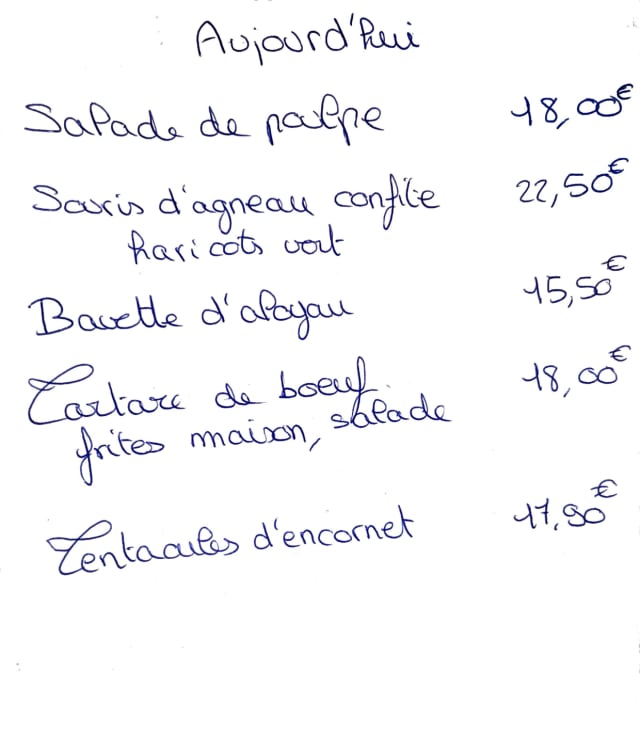 Aujourd'hui
Salade de poulpe 18,00€
Souris d'agneau confite 22,50€
haricots vert
Bavette d'aloyau 15,50€
Tartare de boeuf 18,00€
frites maison, salade
Tentacules d'encornet 17,90€